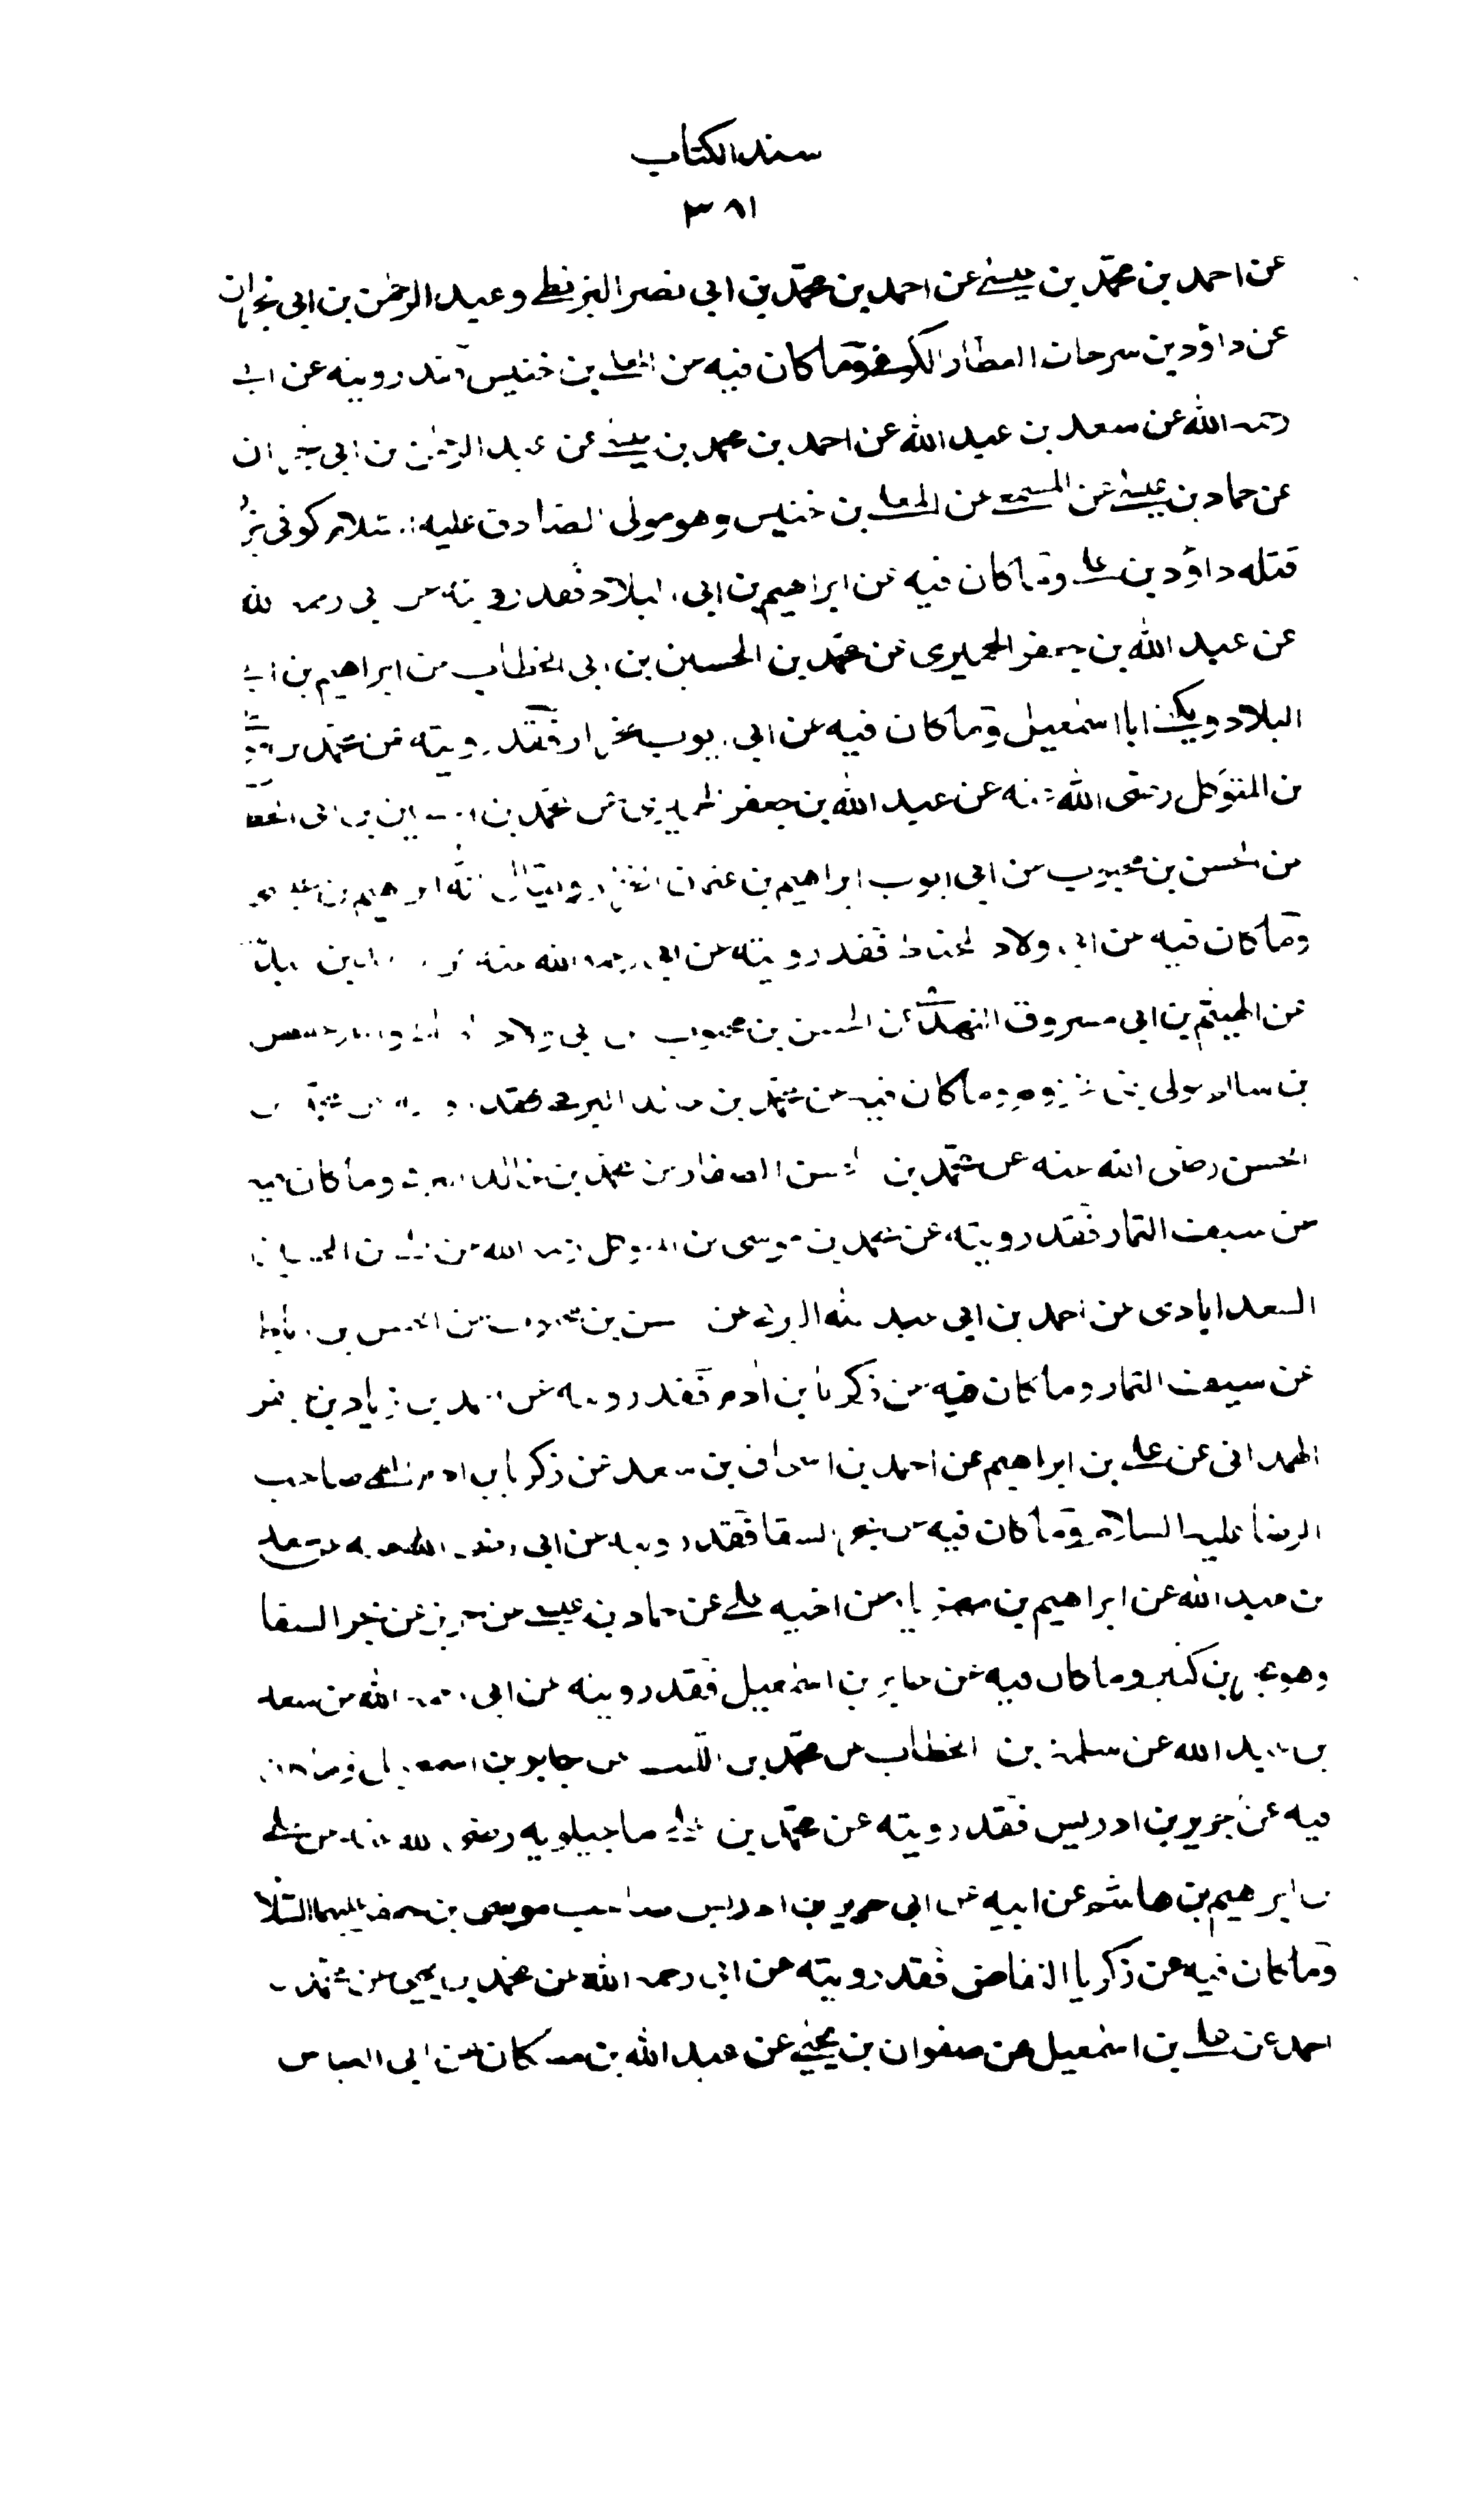 سند الكتاب
٣٨١
عن احمد بن محمّد بن عيسى عن احمد بن محمّد بن ابى نصر البزنطى وعبد الرحمٰن بن ابى نجران
عن داؤد بن سرحان العطار الكوفى وما كان فيه عن المعلى بن خنيس فقد رويته عن ابى
رحمه الله عن سعد بن عبد الله عن احمد بن محمد بن عيسى عن عبد الرحمٰن بن ابى نجران
عن حماد بن عيسى عن المسمعى عن المعلى بن خنيس وهو مولى الصادق عليه السلام كوفى بزاز
قتله داؤد بن على وما كان فيه عن ابراهيم بن ابى البلاد فقد رويته عن ابى رحمه الله
عن عبد الله بن جعفر الحميرى عن محمّد بن الحسين بن ابى الخطاب عن ابراهيم بن ابى
البلاد ويكنى ابا اسمٰعيل وما كان فيه عن ابى ايوب الخزاز فقد رويته عن محمّد بن موسى
بن المتوكل رضى الله عنه عن عبد الله بن جعفر الحميرى عن محمّد بن الحسين بن ابى الخطاب
عن الحسن بن محبوب عن ابى ايوب ابراهيم بن عثمان الخزاز ويقال انه ابراهيم بن عيسى
وما كان فيه عن ابى ولاد الحناط فقد رويته عن ابى رحمه الله عن سعد بن عبد الله
عن الهيثم بن ابى مسروق النهدى عن الحسن بن محبوب عن ابى ولاد الحناط واسمه حفص
بن سالم مولى بنى مخزوم وما كان فيه عن محمّد بن خالد البرقى فقد رويته عن محمّد بن
الحسن رضى الله عنه عن محمّد بن الحسن الصفار عن محمّد بن خالد البرقى وما كان فيه
عن سيف التمار فقد رويته عن محمّد بن موسى بن المتوكل رحمه الله عن على بن الحسين
السعدابادى عن احمد بن ابى عبد الله البرقى عن الحسن بن محبوب عن الحسن بن رباط
عن سيف التمار وما كان فيه عن زكريا بن ادم فقد رويته عن احمد بن زياد بن جعفر
الهمدانى عن على بن ابراهيم عن احمد بن اسحاق بن سعد عن زكريا بن ادم القمى صاحب
الرضا عليه السلام وما كان فيه عن بحر السقا فقد رويته عن ابى رضى الله عنه عن سعد
بن عبد الله عن ابراهيم بن مهزيار عن اخيه على عن حماد بن عيسى عن حريز عن بحر السقا
وهو بحر بن كنيز وما كان فيه عن جابر بن اسمٰعيل فقد رويته عن ابى رحمه الله عن سعد
بن عبد الله عن سلمة بن الخطاب عن محمّد بن الليث عن جابر بن اسمعيل وما كان
فيه عن جرير بن ادريس فقد رويته عن محمّد بن على ماجيلويه رضى الله عنه عن على
بن ابراهيم بن هاشم عن ابيه عن ابى جرير بن ادريس صاحب موسى بن جعفر عليهما السلام
وما كان فيه عن زكريا النقاض فقد رويته عن ابى رحمه الله عن محمد بن يحيى عن محمّد بن
احمد عن على بن اسمٰعيل عن صفوان بن يحيى عن عبد الله بن مسكان عن ابى العباس